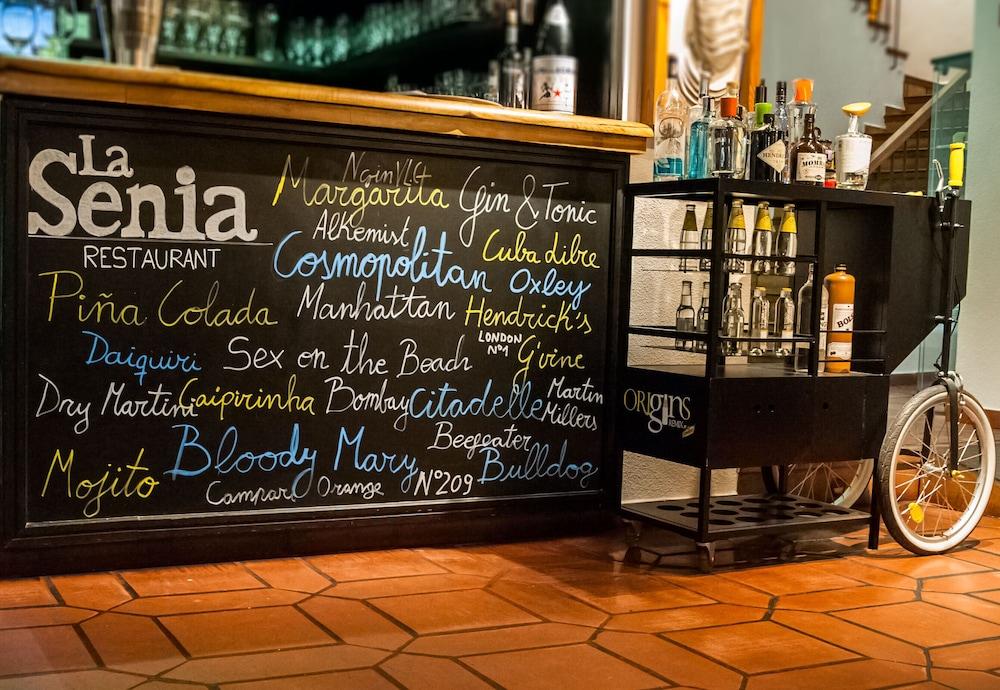 La
Senia
RESTAURANT
NginVLC
Margarita
Gin & Tonic
Alkemist
Cuba Libre
Cosmopolitan
Oxley
Piña Colada
Manhattan
Hendrick's
LONDON
Nº1
Daiquiri
Sex on the Beach
G'vine
Dry Martini
Caipirinha
Bombay
Citadelle
Martin
Millers
Beefeater
Bloody Mary
Bulldog
Mojito
Campari Orange
Nº209
ORIGINS
REMIX
HENDRICK'S
MOM
BOLS